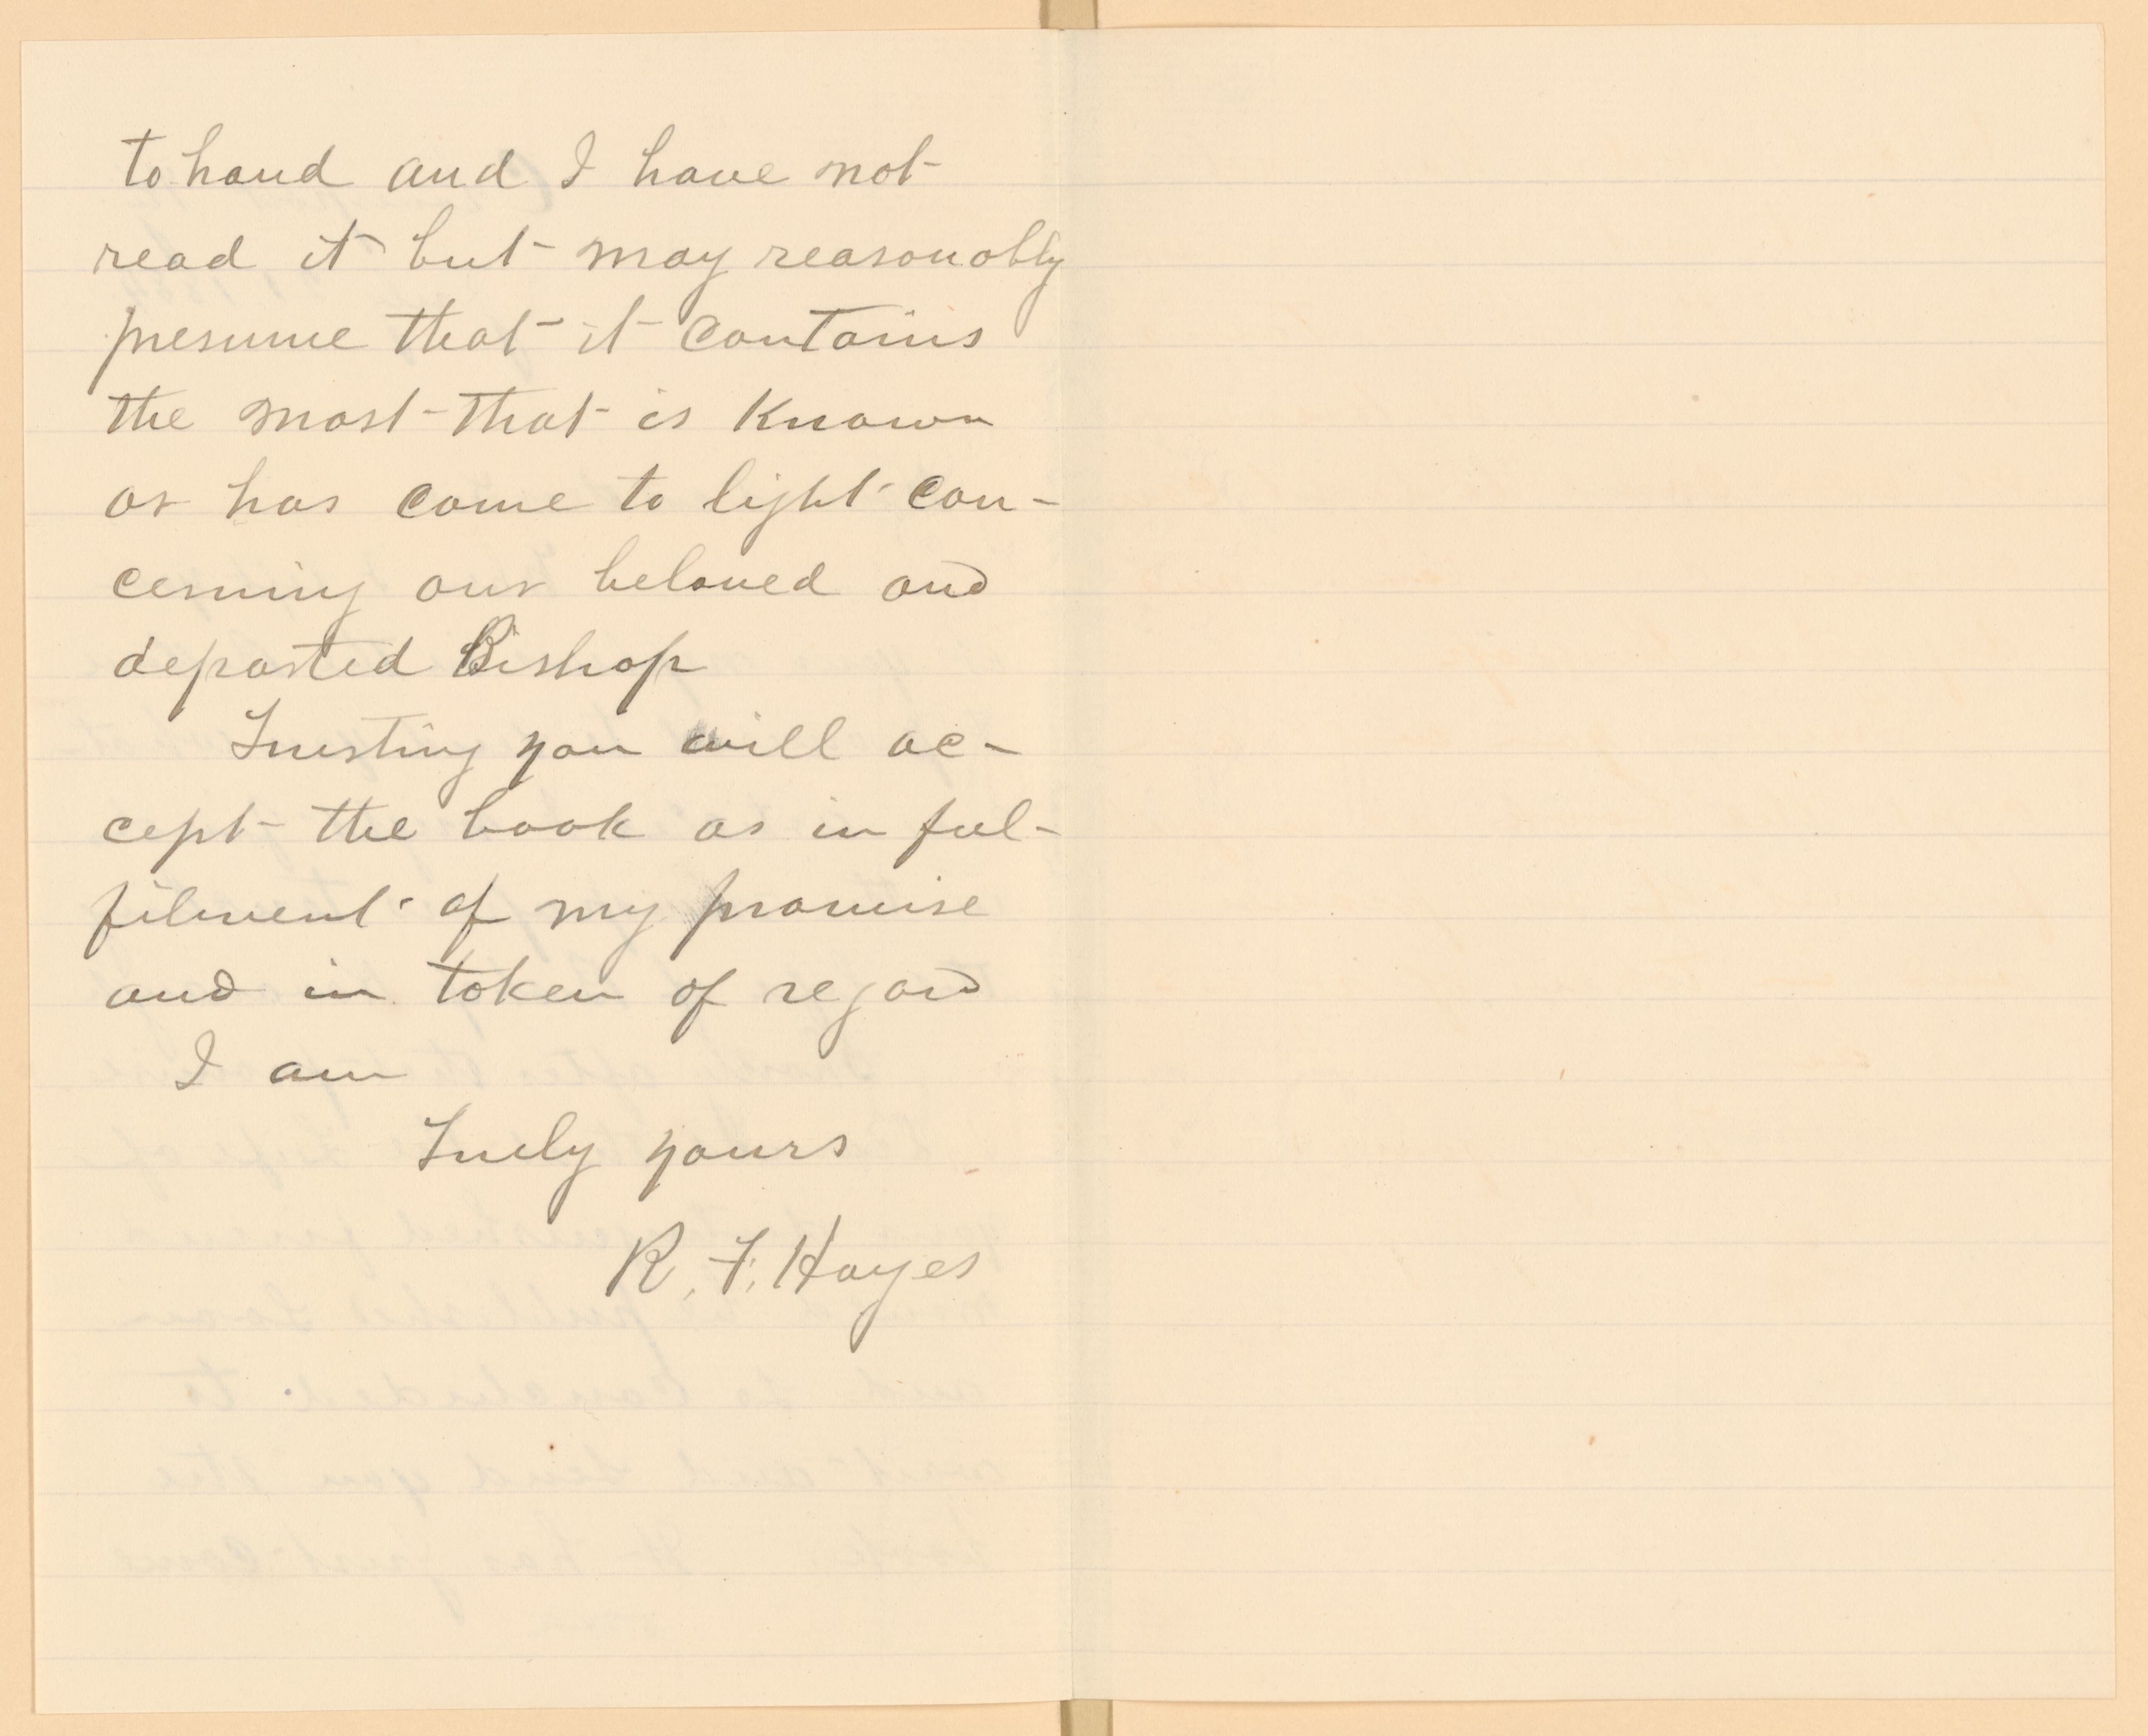 to hand and I have not
read it but may reasonably
presume that it contains
the most that is known
or has come to light con-
cerning our beloved and
departed Bishop
Trusting you will ac-
cept the book as in ful-
filment of my promise
and in token of regard
I am
Truly yours
R. F. Hayes